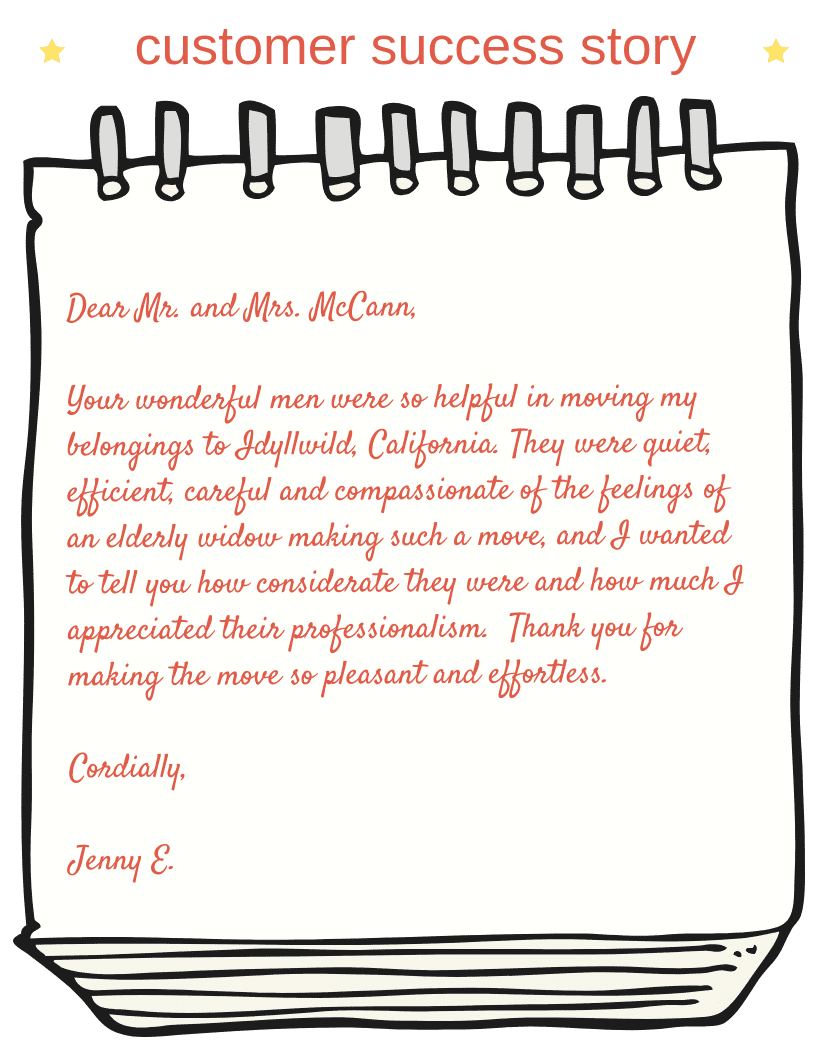 customer success story
Dear Mr. and Mrs. McCann,
Your wonderful men were so helpful in moving my
belongings to Idyllwild, California. They were quiet,
efficient, careful and compassionate of the feelings of
an elderly widow making such a move, and I wanted
to tell you how considerate they were and how much I
appreciated their professionalism.  Thank you for
making the move so pleasant and effortless.
Cordially,
Jenny E.